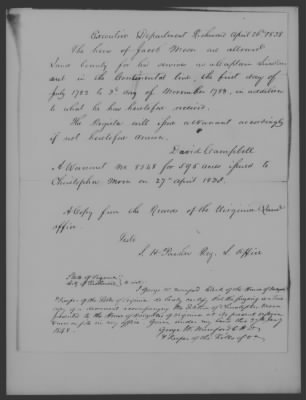 Executive Department Richmond April 26th 1838
The heirs of Jacob Moon are allowed
Land bounty for his services as a Captain
in the Continental line, the first day of
July 1782 to 3d day of November 1783, in addition
to what he has heretofore received.
The Register will issue a warrant accordingly
if not heretofore drawn.
David Campbell
A Warrant No 8548 for 595 acres issued to
Christopher Moon on 27th April 1838.
A Copy from the Records of the Virginia Land
office.
Teste
S. H. Parker Reg. L. Office
State of Virginia
City of Richmond to wit:
I George W. Munford Clerk of the House of Delegates
& Keeper of the Rolls of Virginia do certify that the foregoing is a true
copy of a document accompanying the Petition of Christopher Moon
presented to the House of Delegates of Virginia at its present session
and on file in my office. Given under my hand this
George W. Munford C.H.D.
& Keeper of the Rolls of Va